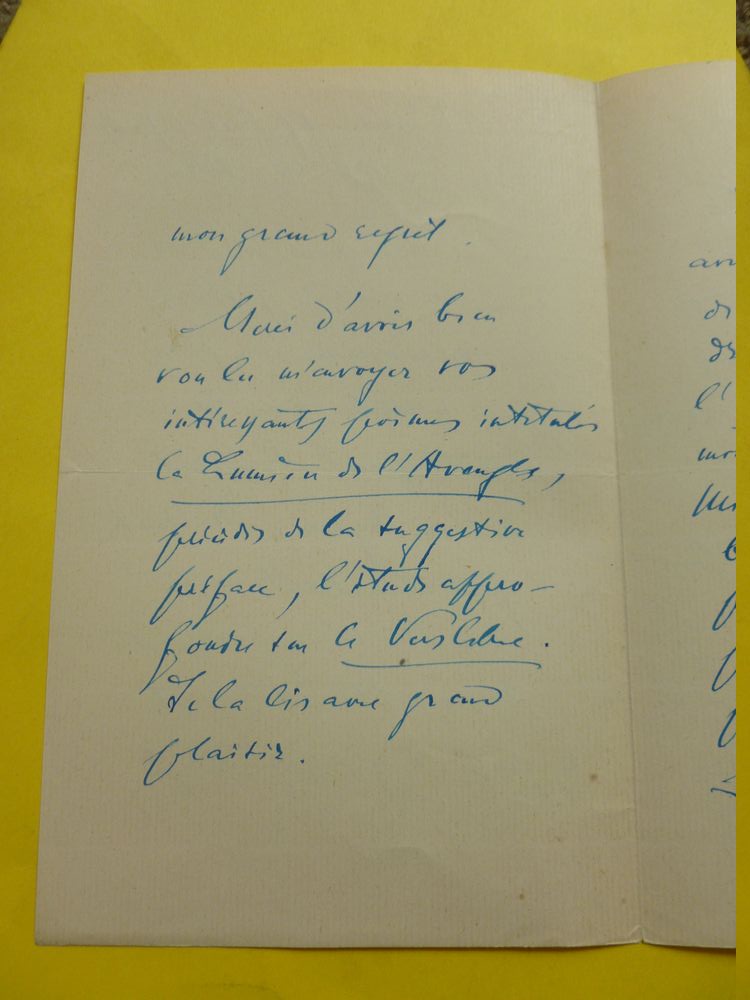 mon grand regret.
Merci d'avoir bien
voulu m'envoyer vos
intéressants poèmes intitulés
la Lumière de l'Aveugle,
précédés de la suggestive
préface, l'étude appro-
fondie sur le Vers libre.
Je la lis avec grand
plaisir.
de
l'